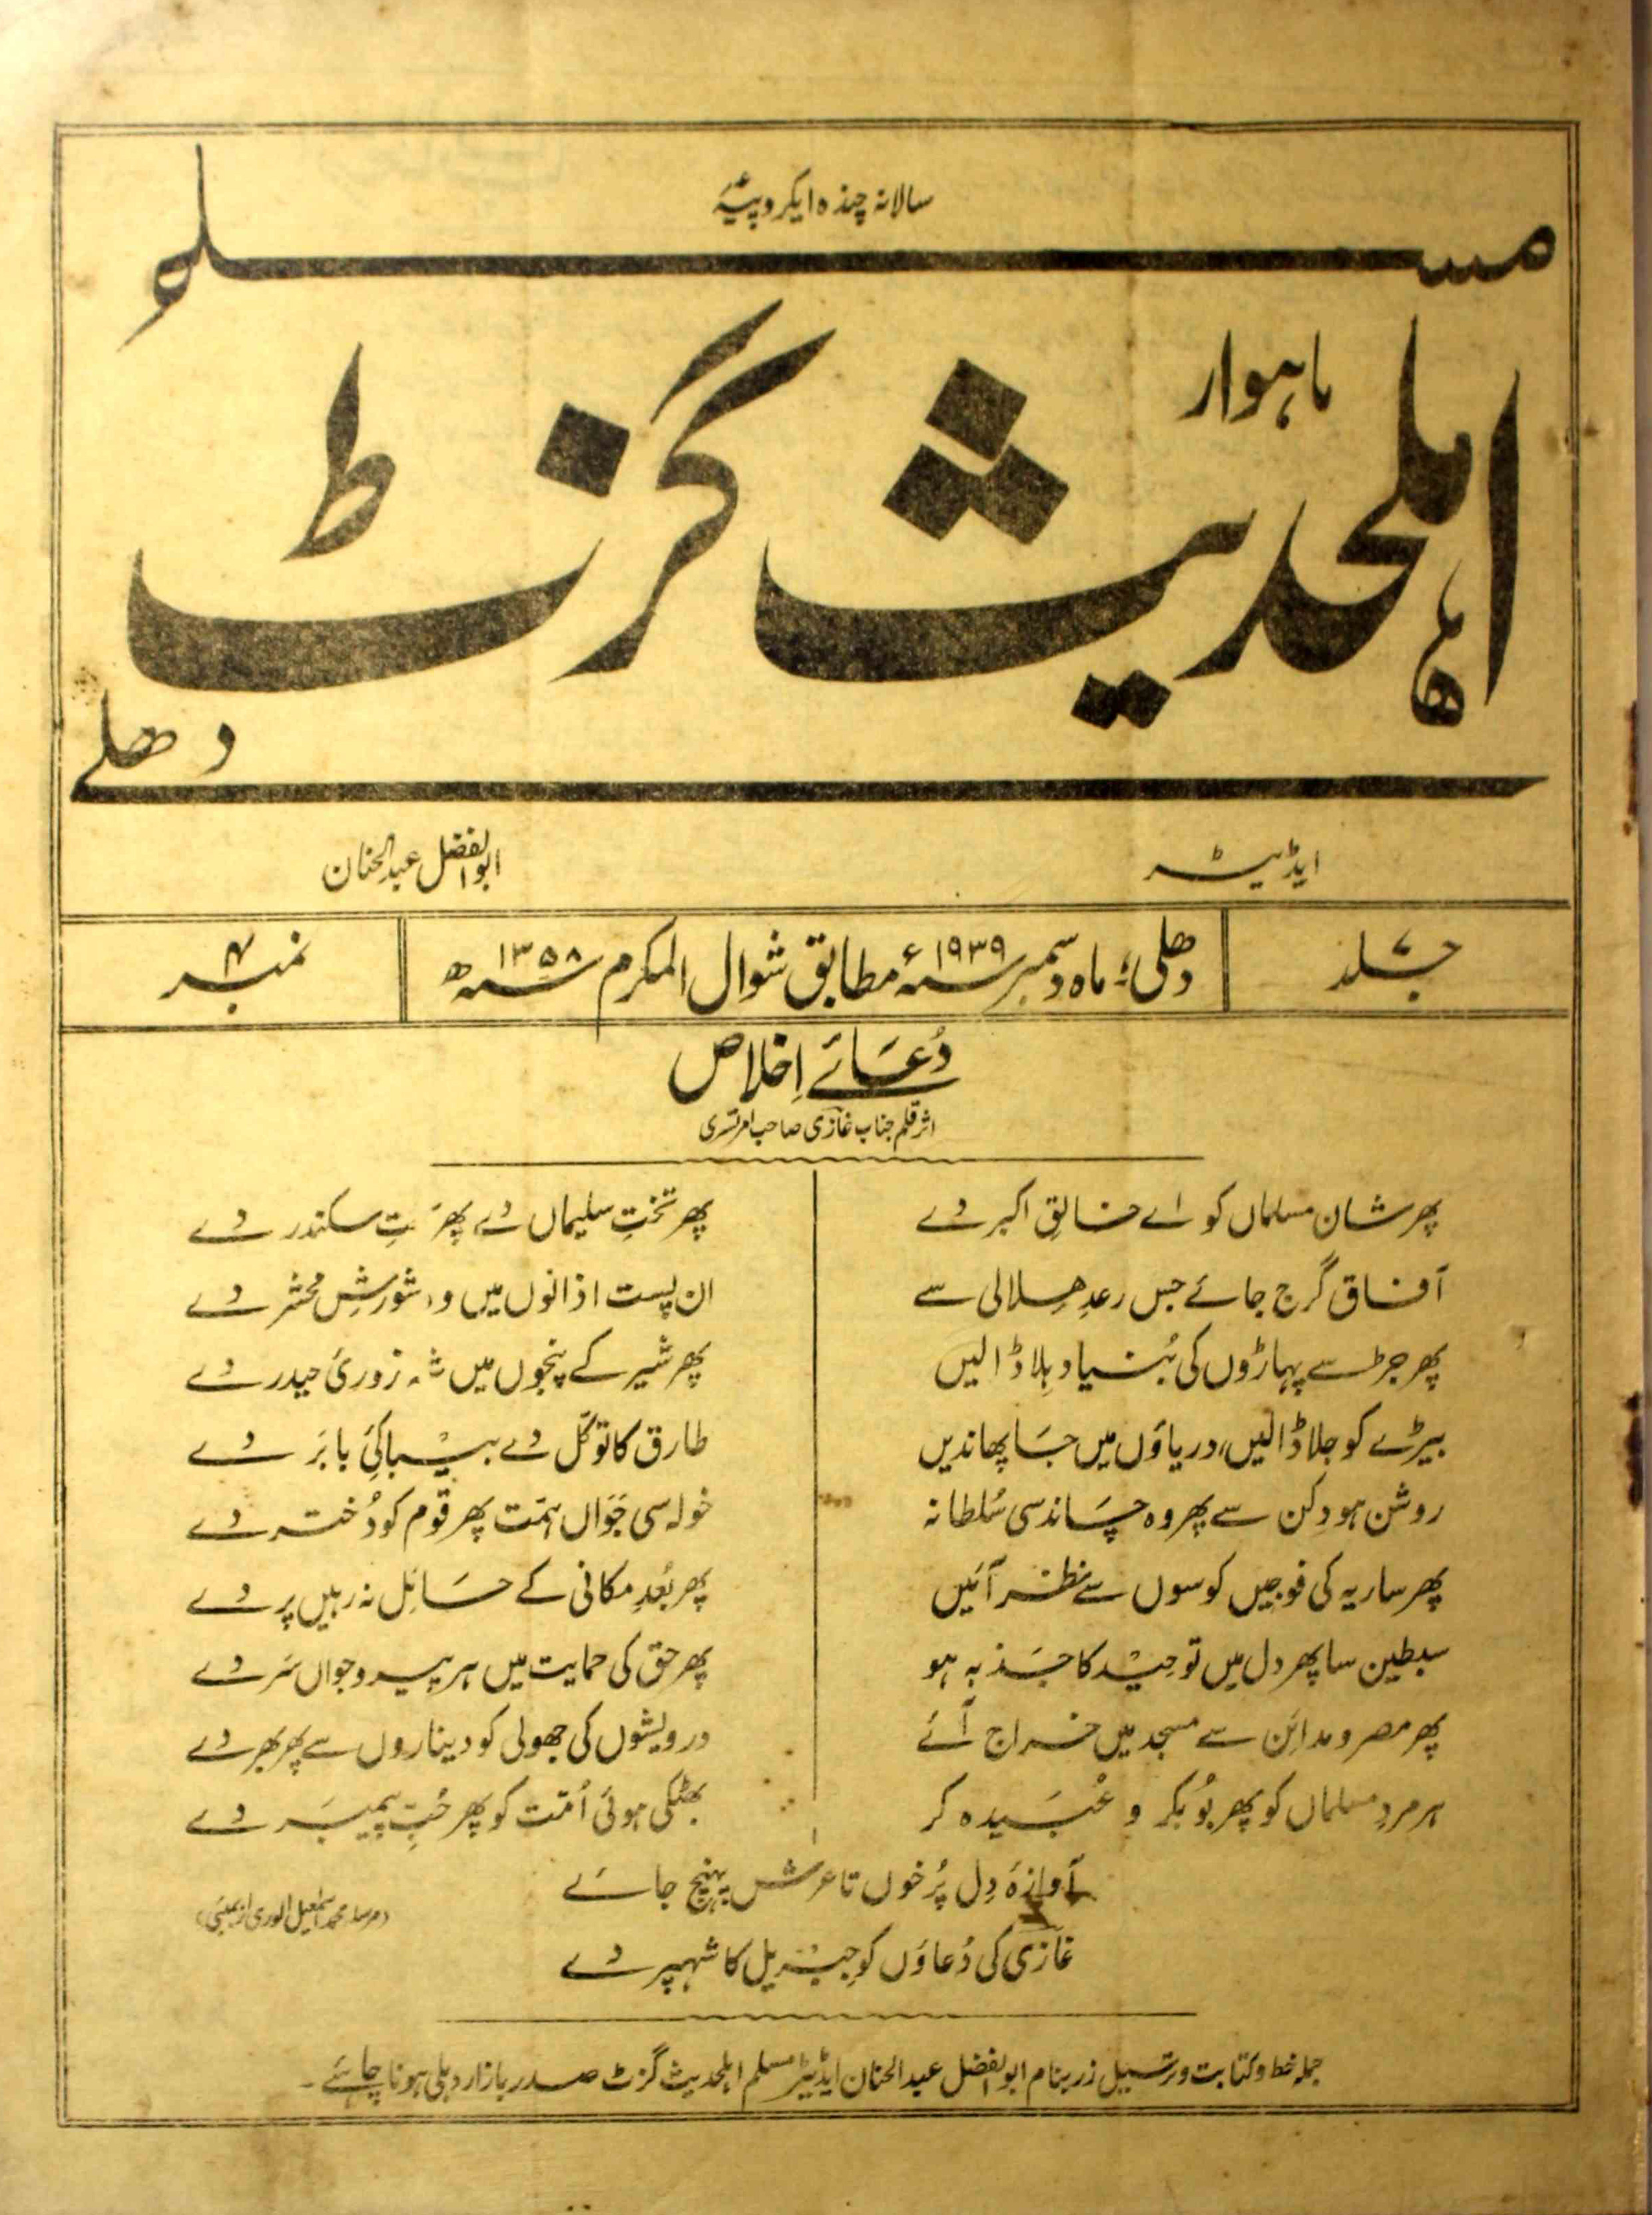 سالانہ چندہ ایکروپیئہ
مسلم
ماہوار
اہلحدیث گزٹ
دھلی
ایڈیٹر
ابوالفضل عبدالحنان
جلد ۷
دھلی، ماہ دسمبر سنہ ۱۹۳۹ء مطابق شوال المکرم سنہ ۱۳۵۸ھ
نمبر ۴
دُعائے اِخلاص
اثر قلم جناب غازی صاحب امرتسری
پھر شان مسلماں کو اے خالقِ اکبر دے
پھر تختِ سلیماں دے پھر سکندر دے
آفاق گرج جائے جس رعدِ ھِلالی سے
ان پست اذانوں میں وہ شورشِ محشر دے
پھر جڑ سے پہاڑوں کی بُنیاد ہِلا ڈالیں
پھر شیر کے پنجوں میں شہ زوریٔ حیدر دے
بیڑے کو جلا ڈالیں، دریاؤں میں جَا پھاندیں
طارق کا توکّل دے بیباکیِٔ بابَر دے
روشن ہو دکن سے پھر وہ چَاند سی سُلطانہ
خولہ سی جَوَاں ہمّت پھر قوم کو دُختر دے
پھر ساریہ کی فوجیں کوسوں سے نظر آئیں
پھر بُعدِ مکانی کے حَائل نہ رہیں پردے
سبطین سا پھر دل میں توحِیْد کا جَذبہ ہو
پھر حق کی حمایت میں ہر پیر و جواں سَر دے
پھر مصر و مدائن سے مسجد میں خراج آئے
درویشوں کی جھولی کو دیناروں سے پھر بھر دے
ہر مردِ مسلماں کو پھر بُوبکر و عُبَیدہ کر
بھٹکی ہوئی اُمّت کو پھر حُبِّ پیمبَر دے
آوازۂ دِل پُرخوں تا عرش پہنچ جائے
غازی کی دُعاؤں کو جِبْریل کا شہپر دے
(مرسلہ محمد اسمٰعیل الوری از بمبئی)
جملہ خط و کتابت و ترسیل زر بنام ابوالفضل عبدالحنان ایڈیٹر مسلم اہلحدیث گزٹ صدر بازار دہلی ہونا چاہئے۔